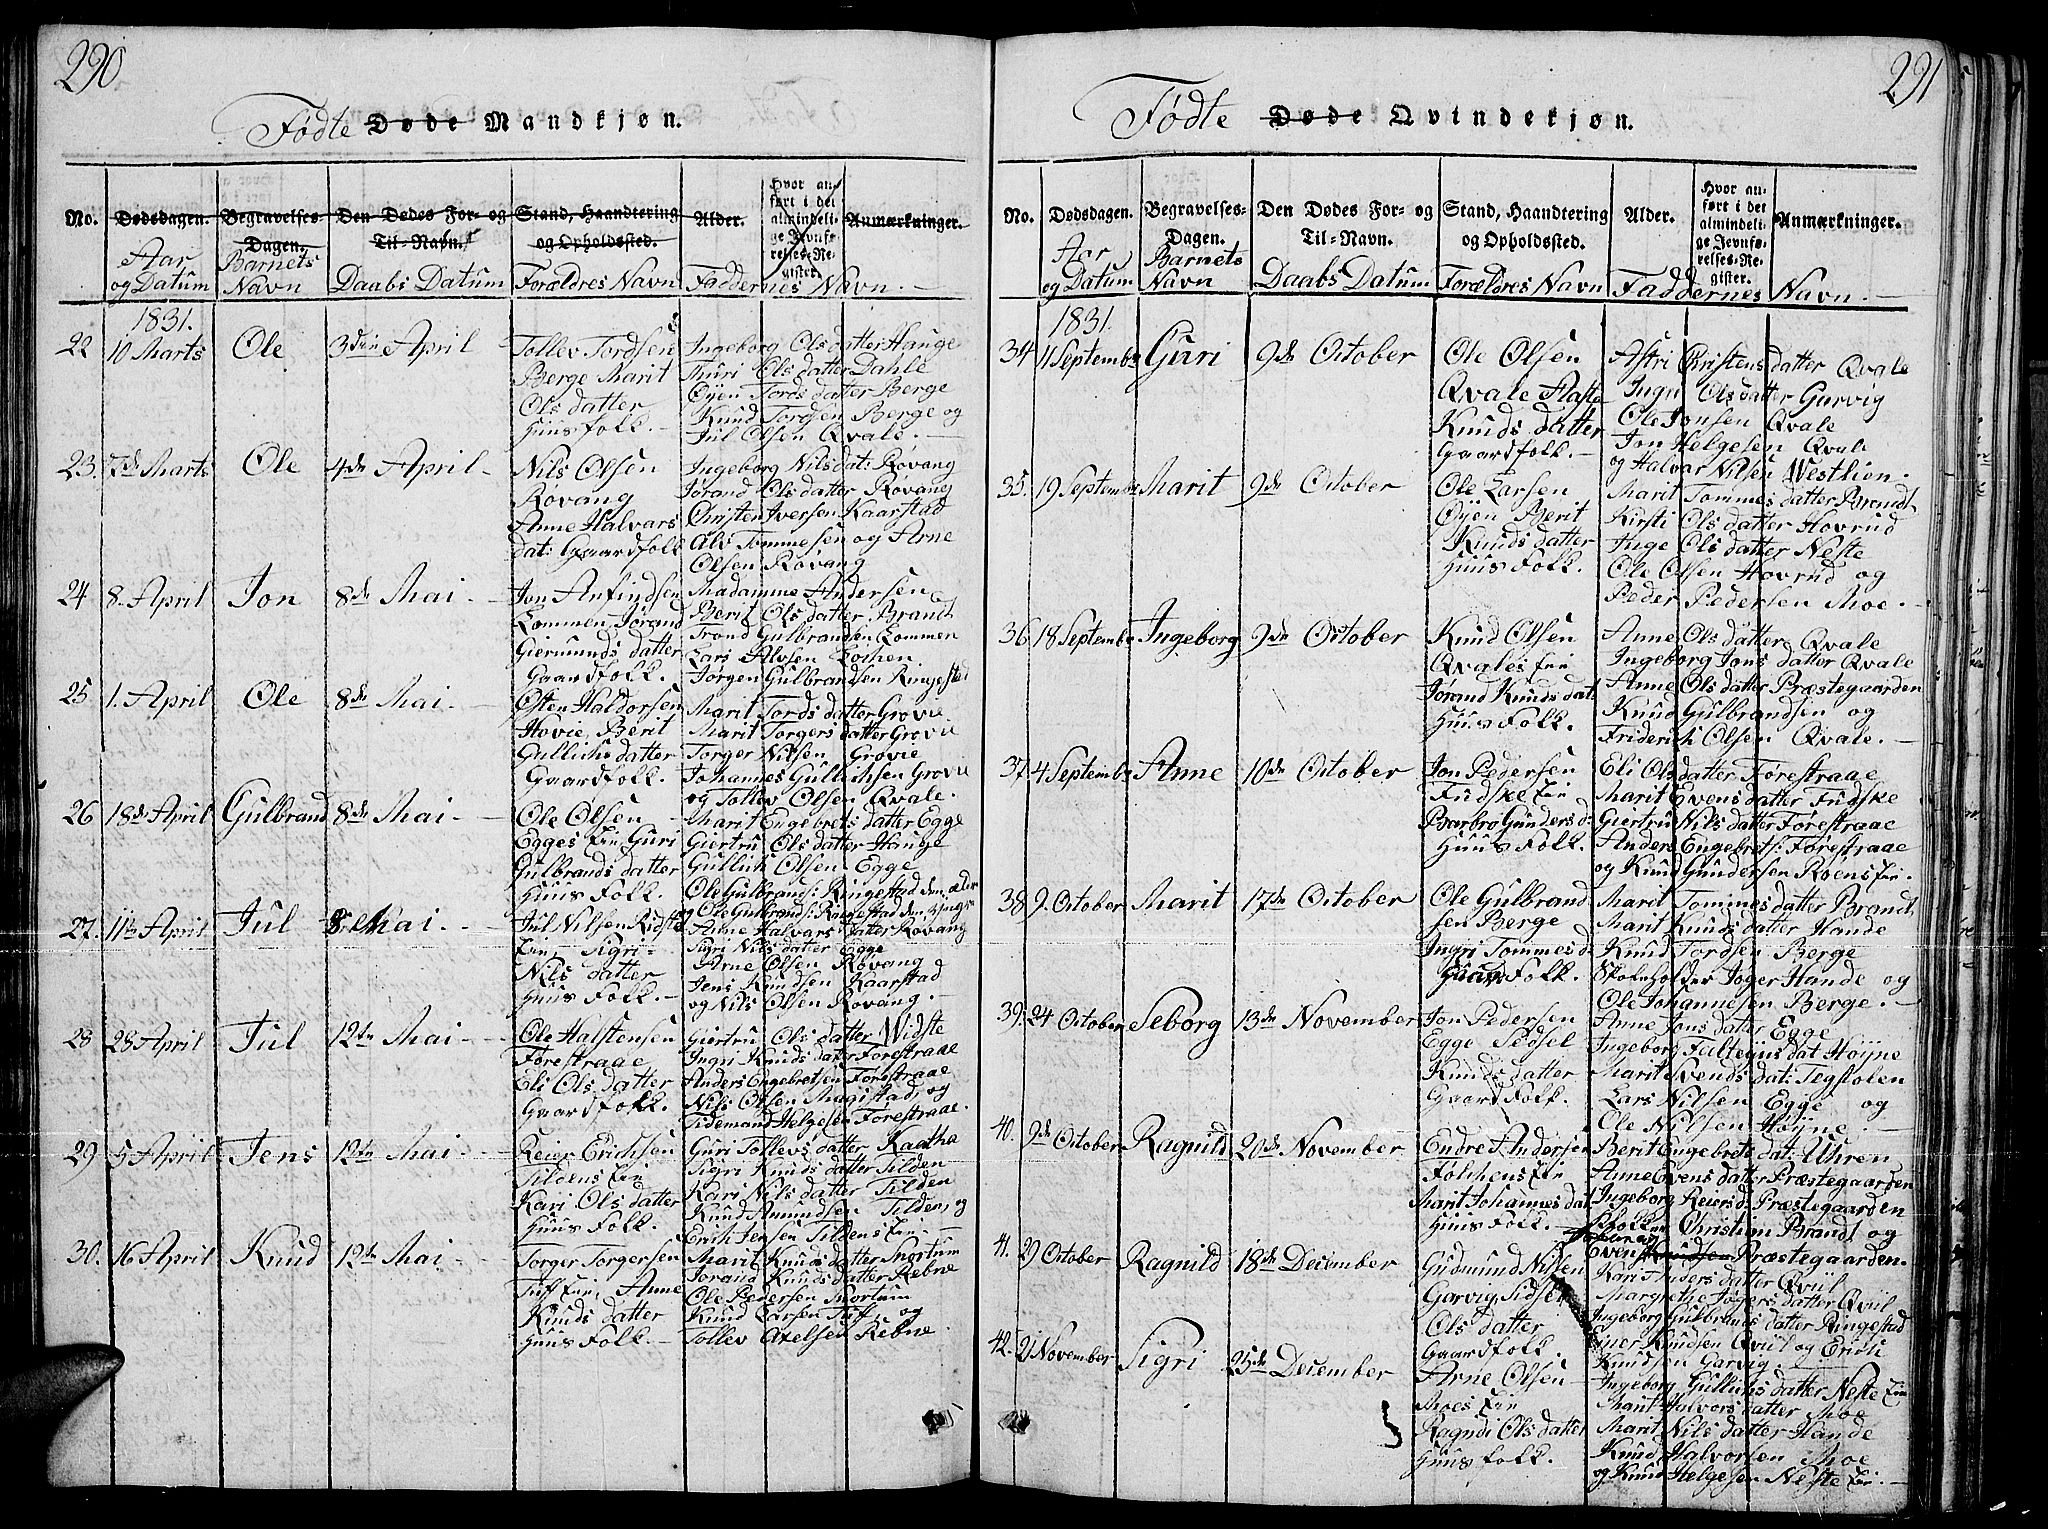 290
Fødte Døde Mandkjøn.
No.
Dødsdagen.
Aar
og Datum
Begravelses
Dagen.
Barnets
Navn
Den Dødes For- og
Til-Navn.
Daabs Datum
Stand, Haandtering
og Opholdssted.
Forældres Navn
Alder.
Hvor an-
ført i det
almindeli-
ge Jevnfø-
relses-Re-
gister.
Anmærkninger.
Faddernes Navn.
1831.
22 10 Marts Ole 3die April
Tollev Tordsen
Berge Marit
Ols datter
Huusfolk.
Ingeborg Ols datter Hauge
Thuri Ols datter Dahle
Øijen Tords datter Berge
Knud Tordsen Berge og
Jul Olsen Qvale.
23. 7de Marts Ole 4de April
Nils Olsen
Røvang
Anne Halvars
dat: Gaardfolk
Ingeborg Nilsdat: Røvang
Jørand Ols datter Røvang
Christen Iversen Kaarstad
Alv Tommesen og Arne
Olsen Røvang
24 8. April Jon 8de Mai
Jon Anfindsen
Lommen, Jørand
Giermunds datter
Gaardfolk.
Madamme Andersen
Berit Ols datter Brandt
Trond Gulbrandsen Lommen
Lars Alvsen Lochen.
Jørgen Gulbrandsen Ringestad
25 1. April Ole 8de Mai
Østen Haldorsen
Hovie, Berit
Gullichs datter
Gaardfolk.
Marit Tords datter Grovie
Marit Torgers datter Grovie
Torger Nilsen Grovie
Johannes Gullichsen Grovie
og Tollev Olsen Qvale.
26 18de April Gulbrand 8de Mai
Ole Olsen
Egges Eie, Guri
Gulbrands datter
Huus Folk.
Marit Engebrets datter Egge
Giertru Ols datter Hauge
Gullich Olsen Egge
Ole Gulbrands: Ringestad den ælder
og Ole Gulbrands: Ringestad den Yngr
27. 11te April Jul 8de Mai
Jul Nilsen Ridste
Eie, Sigri
Nils datter
Huus Folk.
Anne Halvars datter Røvang
Sigri Nils datter Egge
Arne Olsen Røvang
Jens Knudsen Kaarstad
og Nils Olsen Røvang.
28 28 April Jul 12te Mai
Ole Halstensen
Førestraae
Eli Ols datter
Gaardfolk.
Giertru Ols datter Widste
Ingri Knuds datter Førestraae
Anders Engebretsen Førestraae
Nils Olsen Magistad, og
Tidemand Helgesen Førestraae.
29 5 April Jens 12te Mai
Reier Erichsen
Tildens Eie
Kari Ols datter
Huus Folk.
Guri Tollevs datter Kaatha
Sigri Knuds datter Tilden
Kari Nils datter Tilden
Knud Amundsen Tilden, og
Erich Jensen Tildens Eie
30. 16 April Knud 12te Mai
Torger Torgersen
Tuff Eie, Anne
Knuds datter
Huus Folk.
Marit Knuds datter Snortum
Jorand Knuds datter Rebne
Ole Pedersen Snortum
Knud Larsen Tuff og
Tollev Axelsen Rebne.
291
Fødte Døde Qvindekjøn.
No.
Dødsdagen.
Aar
og Datum
Begravelses-
Dagen.
Barnets
Navn
Den Dødes For- og
Til-Navn.
Daabs Datum
Stand, Haandtering
og Opholdssted.
Forældres Navn
Alder.
Hvor an-
ført i det
almindeli-
ge Jevnfø-
relses-Re-
gister.
Anmærkninger.
Faddernes Navn.
1831.
34 11 September Guri 9de October
Ole Olsen
Qvale Aaste
Knuds datter
Gaardfolk.
Astri Christens datter Qvale
Ingri Ols datter Gurvig
Ole Jonsen Qvale
Jon Helgesen Qvale
og Halvar Nilsen Westlien.
35. 19 September Marit 9de October
Ole Larsen
Øijen Berit
Knuds datter
Huus Folk.
Marit Tommes datter Brandt
Kirsti Ols datter Hovrud
Inge Ols datter Neste
Ole Olsen Hovrud og
Peder Pedersen Moe.
36 18 September Ingeborg 9de October
Knud Olsen
Qvales Eie
Jørand Knuds dat:
Huus Folk.
Anne Ols datter Qvale
Ingeborg Jons datter Qvale
Anne Ols datter Præstegaarden
Knud Gulbrandsen og
Friderich Olsen Qvale.
37. 4 September Anne 10de October
Jon Pedersen
Fudske Eie
Barbro Gunders d:
Huus Folk.
Eli Ols datter Førestraae
Marit Evens datter Fudske
Giertru Nils datter Førestraae
Anders Engebrets: Førestraae
og Knud Gundersen Roens Eie.
38 9. October Marit 17de October
Ole Gulbrand
sen Berge
Ingri Tommes d:
Folk.
Marit Tommes datter Brandt
Marit Knuds datter Hande
Knud Tordsen Berge
Skoleholder Joger Hande og
Ole Johannesen Berge.
39. 24 October Seborg 13de November
Jon Pedersen
Egge Sedsel
Knuds datter
Gaard Folk.
Anne Jons datter Egge
Ingeborg Falteiis dat: Høyne
Marit Svends dat: Tegstolen
Lars Nilsen Egge og
Ole Nilsen Høyne
40. 9de October Ragnild 20de November
Endre Andersen
Følchens Eie
Marit Johannes dat
Huus Folk.
Berit Engebrets dat: Uhren
Anne Evens datter Præstegaarden
Ingeborg Reiers d: Præstegaarden
Christian Brandt og
Even Præstegaarden.
41. 29 October Ragnild 18de December
Gudmund Nilsen
Garvig Sidsel
Ols datter
Gaardfolk.
Kari Anders datter Qviil
Margrethe Jøgers datter Qviil
Ingeborg Gulbrands datter Ringestad
Knudsen Qviil og Erich
Knudsen Garvig.
42. 21 November Sigri 25de December
Arne Olsen
Moes Eie
Ragndi Ols datter
Huus folk.
Ingeborg Gullichs datter Neste Eie
Marit Halvors datter Moe
Marit Nils datter Hande
Knud Halvorsen Moe
og Knud Helgesen Neste Eie.